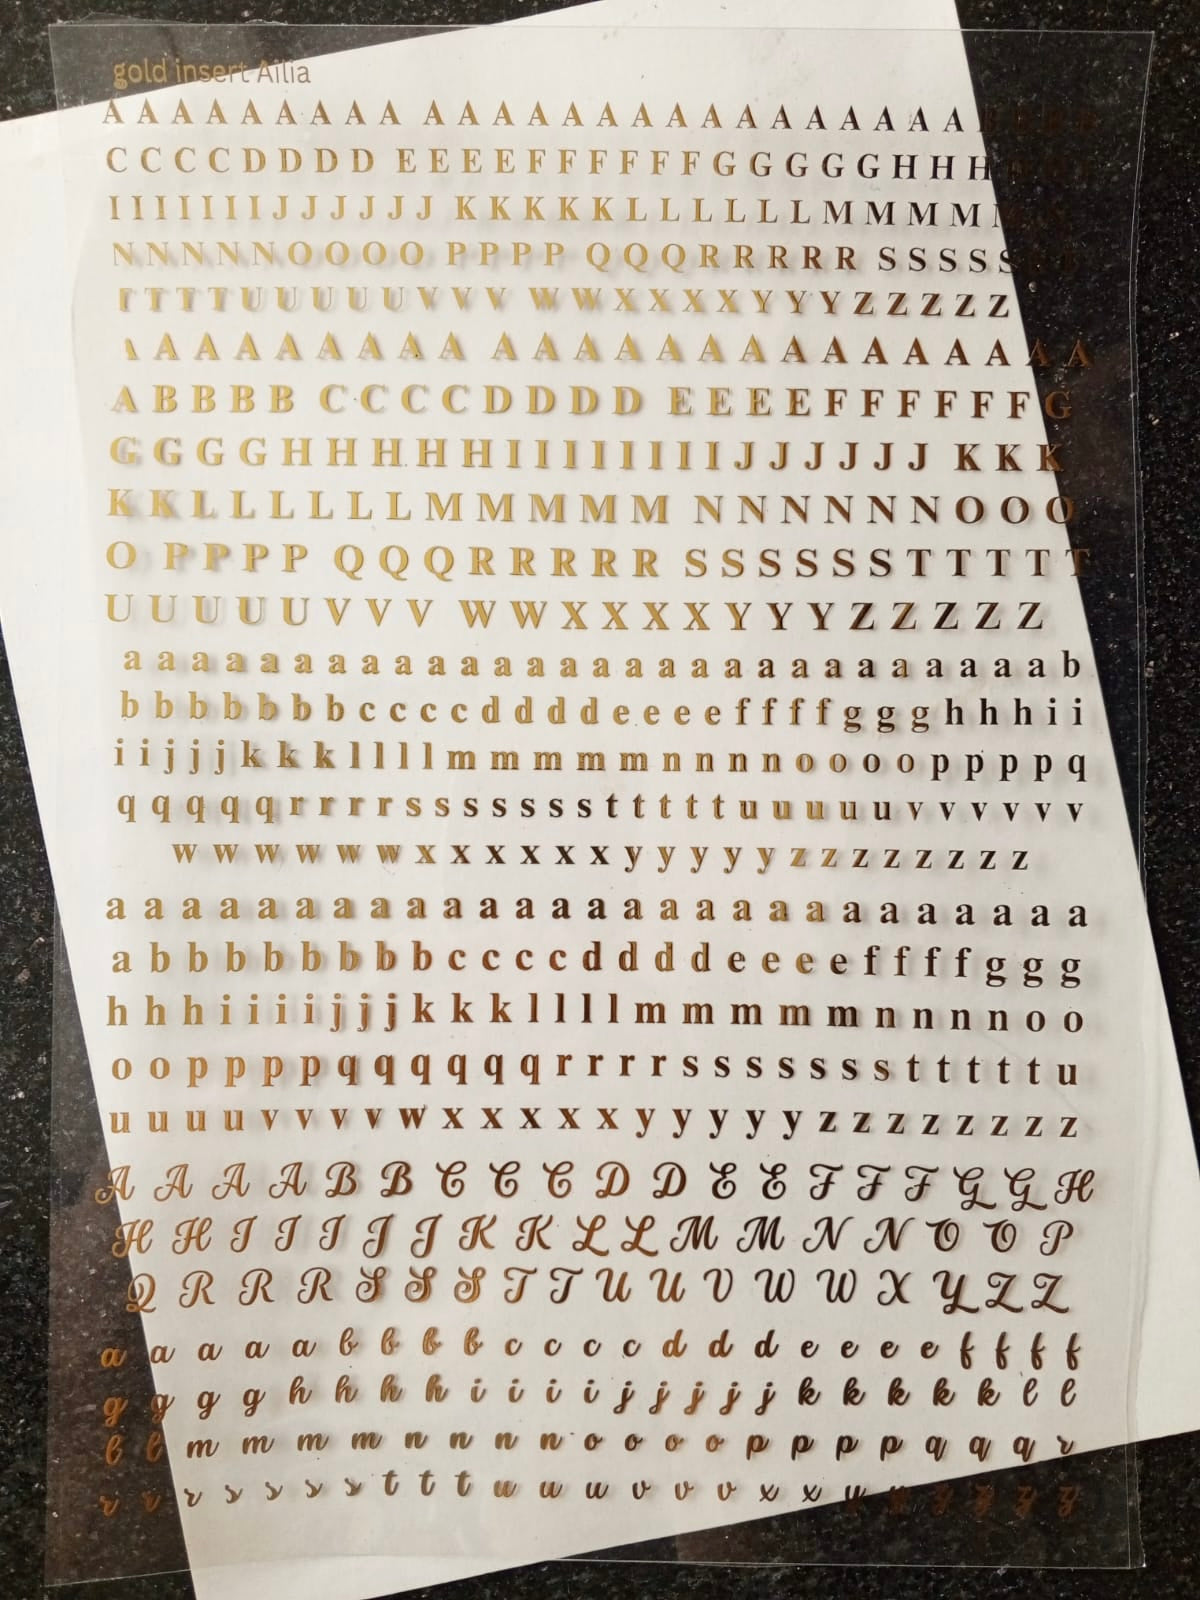 gold insert Ailia
A A A A A A A A A A A A A A A A A A A A A A A A A
C C C C D D D D E E E E F F F F F F G G G G G H H H
I I I I I I I J J J J J J K K K K K L L L L L L M M M M
N N N N N O O O O O P P P P Q Q Q R R R R R S S S S S
T T T T U U U U U V V V W W X X X X Y Y Y Z Z Z Z Z
A A A A A A A A A A A A A A A A A A A A A A A A
A B B B B C C C C D D D D E E E E F F F F F F G
G G G G H H H H H I I I I I I I I J J J J J J K K K
K K L L L L L L M M M M M N N N N N N O O O
O P P P P Q Q Q R R R R R S S S S S S T T T T T
U U U U U V V V W W X X X X Y Y Y Z Z Z Z Z
a a a a a a a a a a a a a a a a a a a a a a a a a a a a b
b b b b b b b c c c c d d d d e e e e f f f f g g g h h h i i
i i j j j k k k l l l l m m m m m m n n n n o o o o p p p p q
q q q q q r r r r s s s s s s s t t t t t u u u u u v v v v v v
w w w w w w x x x x x x y y y y y z z z z z z z z
a a a a a a a a a a a a a a a a a a a a a a a a a a a
a b b b b b b b b c c c c d d d d e e e e f f f f g g g
h h h i i i i j j j k k k l l l l m m m m m n n n n o o
o o p p p p q q q q q q r r r r s s s s s s s t t t t t u
u u u u v v v v w x x x x x y y y y y z z z z z z z z
A A A A B B C C C D D E E F F F G G H
H H I I I J J K K L L M M N N O O P
Q R R R S S S T T U U V W W X Y Z Z
a a a a a b b b b c c c c d d d e e e e f f f f
g g g g h h h h i i i i j j j j j k k k k k l l
l l m m m m n n n n o o o o p p p p q q q r
r r r s s s s t t t u u u v v v x x